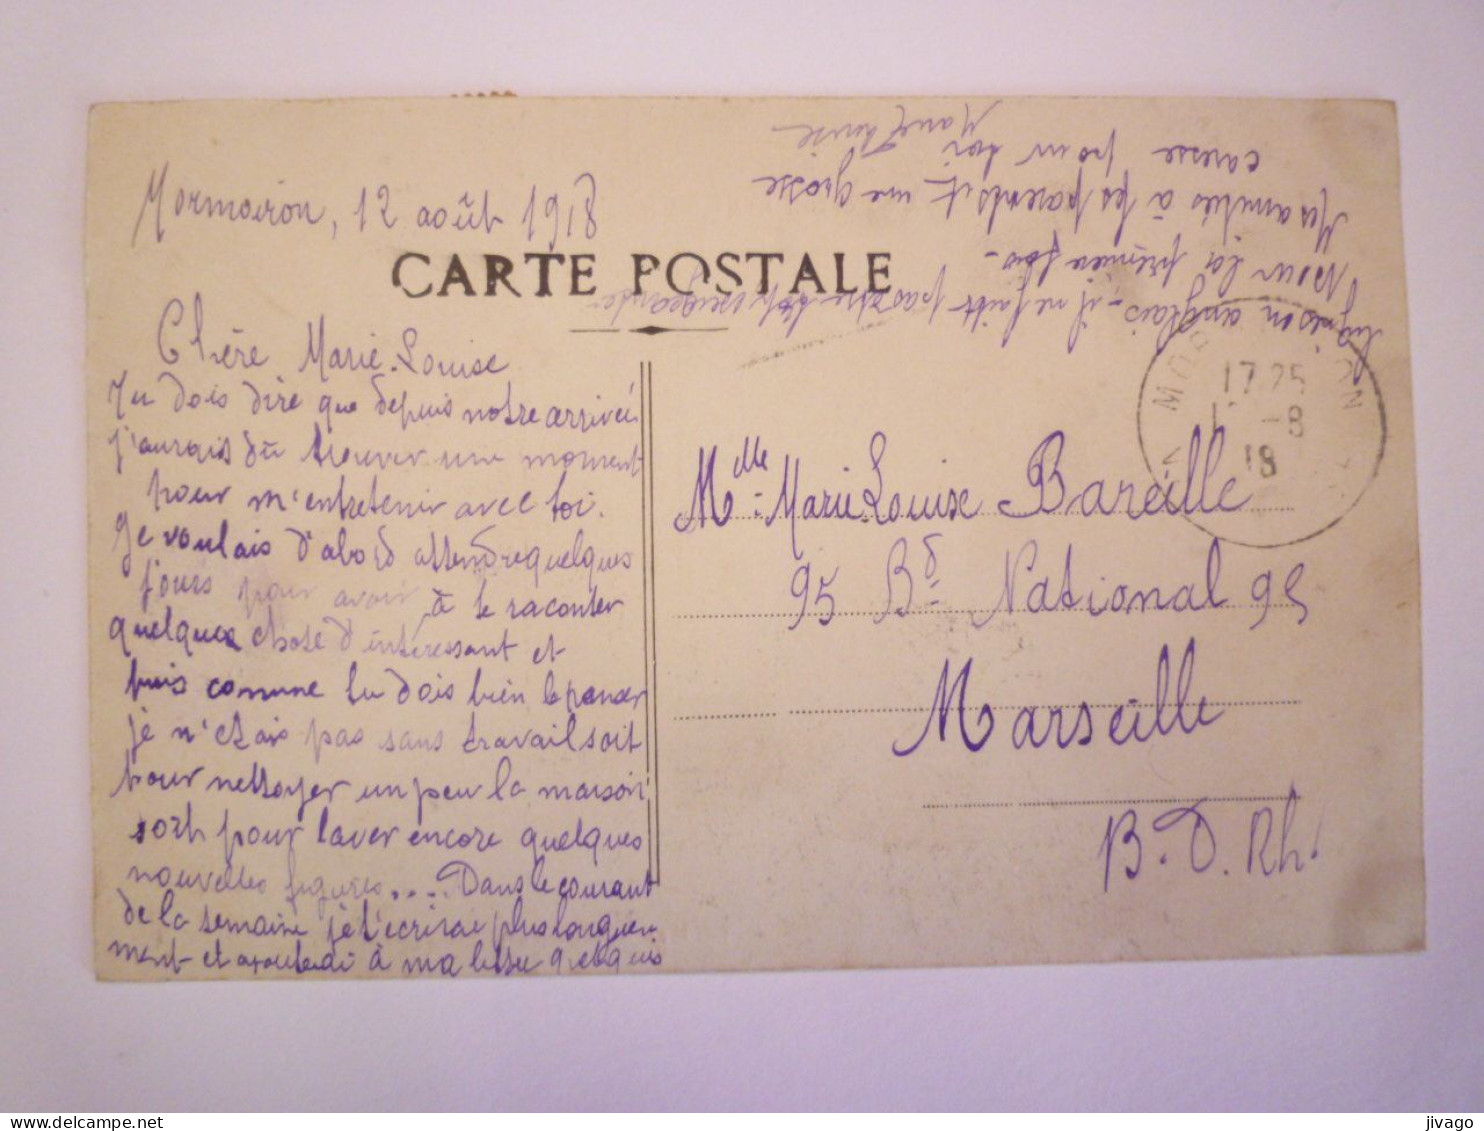 Mormoiron, 12 août 1918
CARTE POSTALE
Chère Marie-Louise
Tu dois dire que depuis notre arrivée
j'aurais dû trouver une moment
pour m'entretenir avec toi.
Je voulais d'abord attendre quelques
jours pour avoir à te raconter
quelques chose d'intéressant et
puis comme tu dois bien le penser
je n'étais pas sans travail soit
pour nettoyer un peu la maison
soit pour laver encore quelques
nouvelles figures.... Dans le courant
de la semaine je t'écrirai plus longue-
ment et ajouterai à ma lettre quelques
anglais - il ne faut pas être trop
pour la première fois -
Mes amitiés à tes parents et une grosse
caresse pour toi
Marie Louise
17 25
-8
18
Mlle Marie-Louise Bareille
95 Bd National 95
Marseille
B.D.Rh.
jivago